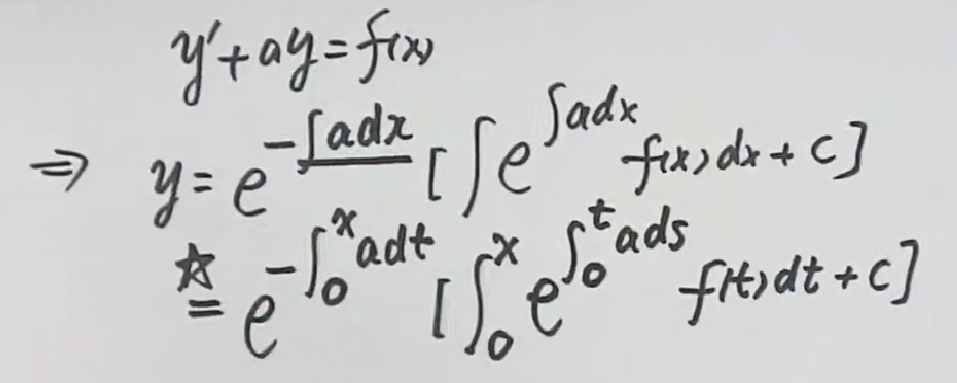 y'+ay=f(x)
⇒ y=e^{-∫adx}[∫e^{∫adx}f(x)dx+C]
☆= e^{-∫_0^x adt}[∫_0^x e^{∫_0^t ads}f(t)dt+C]